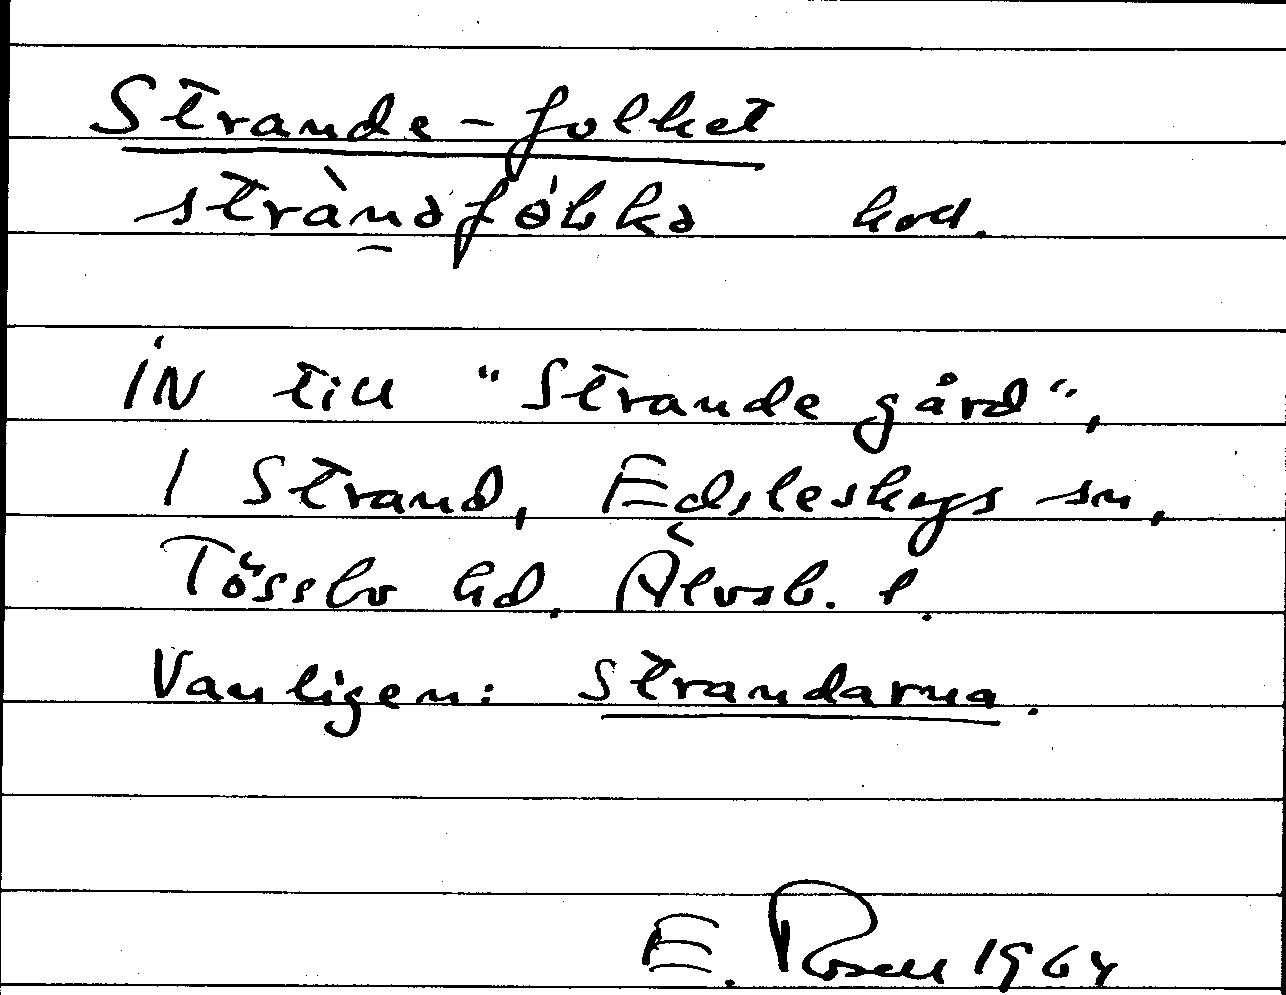 Strande-folket
stràndfólkə koll.
IN till "Strande gård",
1 Strand, Edsleskogs sn,
Tössbo hd. Älvsb. l.
Vanligen: Strandarna.
E. Rosell 1964